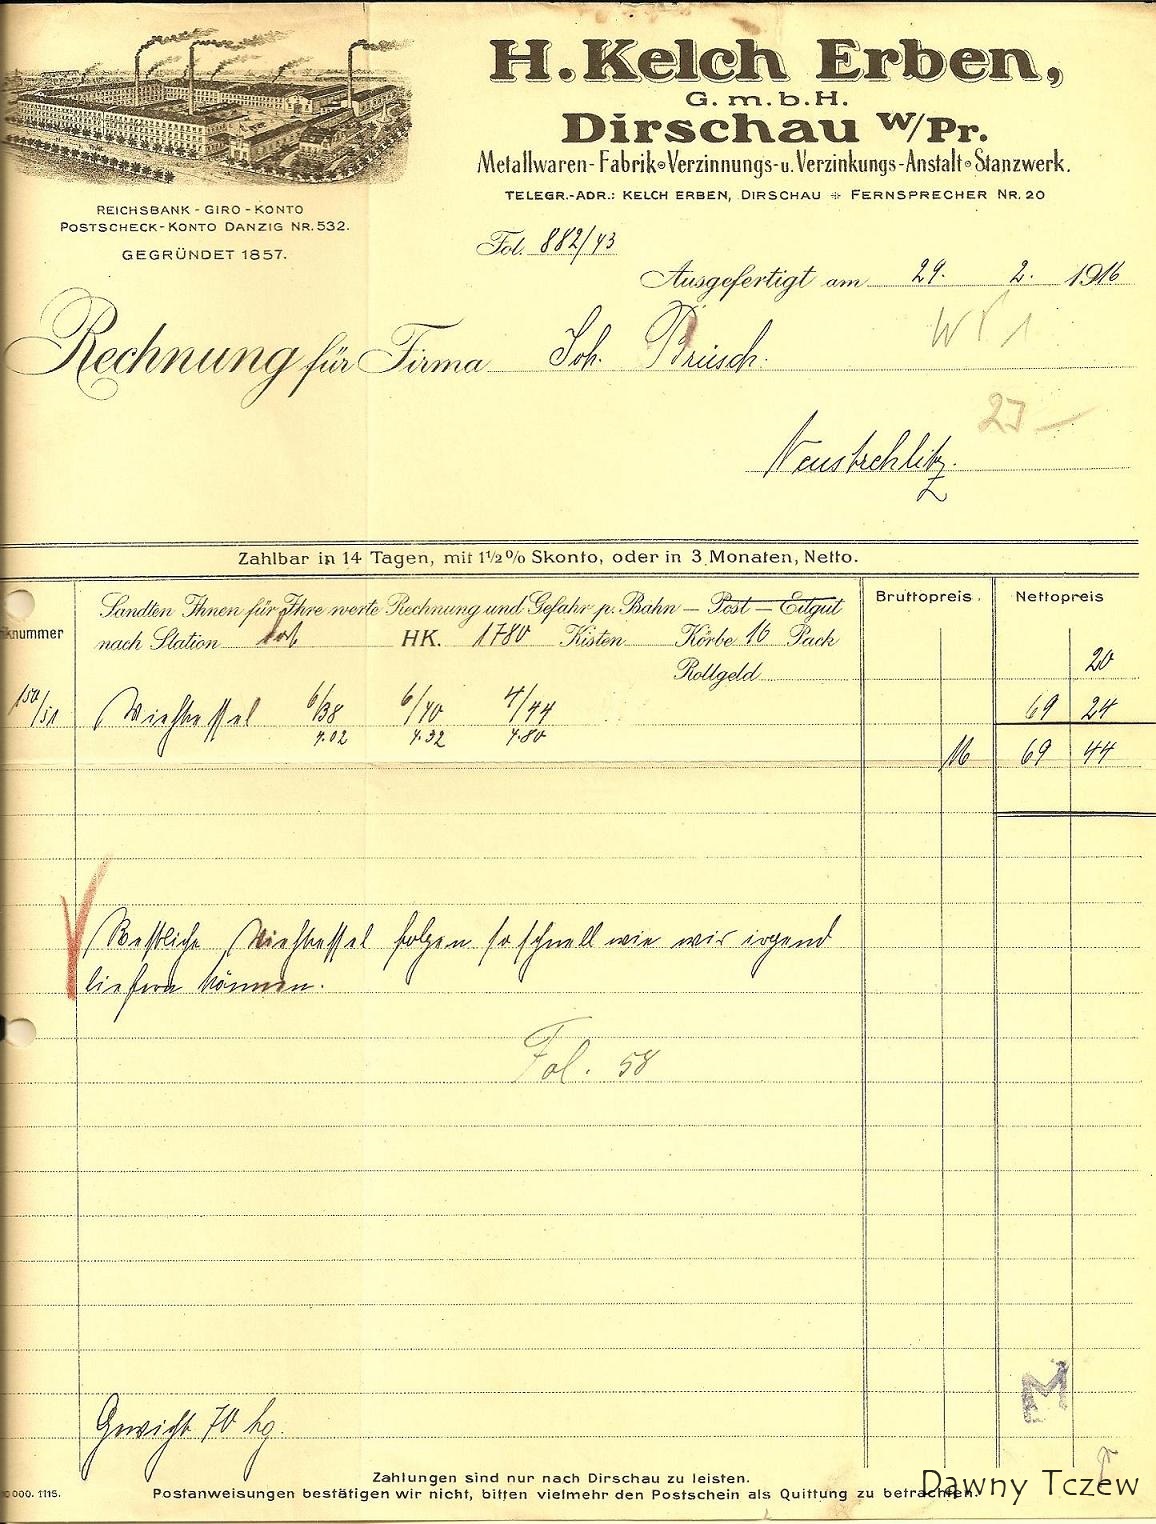 H. Kelch Erben,
G. m. b. H.
Dirschau W/Pr.
Metallwaren-Fabrik Verzinnungs- u. Verzinkungs-Anstalt Stanzwerk.
TELEGR.-ADR.: KELCH ERBEN, DIRSCHAU FERNSPRECHER NR. 20
REICHSBANK - GIRO - KONTO
POSTSCHECK-KONTO DANZIG NR. 532.
GEGRÜNDET 1857.
Fol. 882/43
Ausgefertigt am 29. 2. 1916
Rechnung für Firma Joh. Prüsch.
23 —
Neustrehlitz.
Zahlbar in 14 Tagen, mit 1½% Skonto, oder in 3 Monaten, Netto.
Sandten Ihnen für Ihre werte Rechnung und Gefahr p. Bahn — Post — Eilgut
Bruttopreis. Nettopreis
iknummer
nach Station HK. 1780 Kisten Körbe 16 Pack
20
Rollgeld
150/51 Viehkessel 6/38 6/40 4/44 69 24
4.02 4.32 4.80
M 69 44
Restliche Viehkessel folgen so schnell wie wir irgend
liefern können.
Fol. 58
M
Gewicht 70 kg.
Zahlungen sind nur nach Dirschau zu leisten.
000. 1115. Postanweisungen bestätigen wir nicht, bitten vielmehr den Postschein als Quittung zu betrachten.
Dawny Tczew